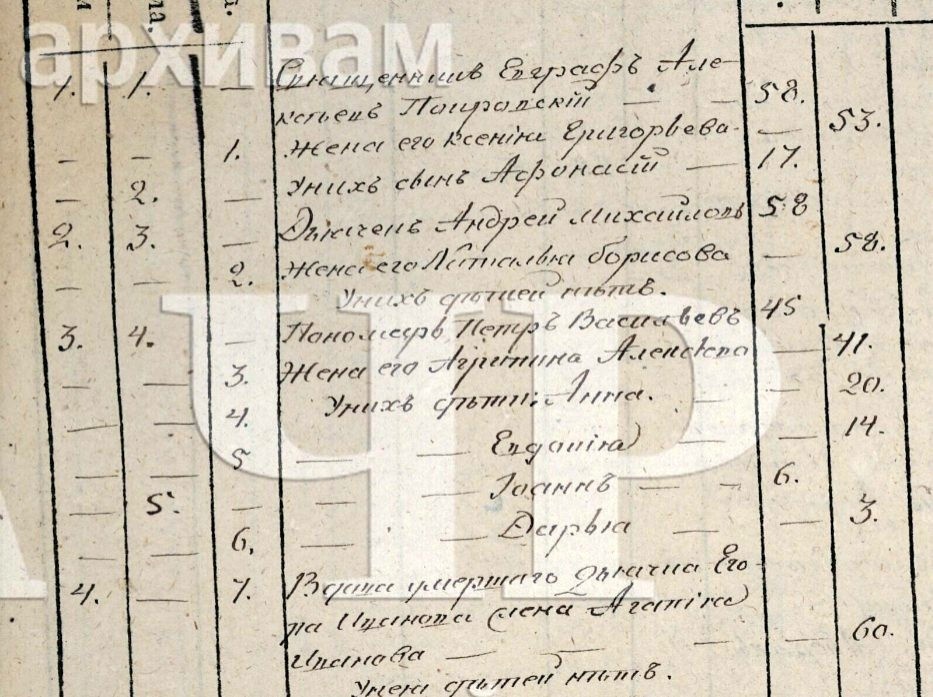 архивам
1. 1. — Священникъ Евграфъ Але-
ксѣевъ Покровскій — — 58.
— — 1. Жена его Ксенія Григорьева — — 53.
— 2. — У нихъ сынъ Афонасій — 17.
2. 3. — Дьячекъ Андрей Михайловъ 58
— — 2. Жена его Наталья Борисова — 58.
У нихъ дѣтей нѣтъ.
3. 4. — Пономарь Петръ Васильевъ 45
— — 3. Жена его Агрипина Алексѣева — 41.
— — 4. У нихъ дѣти: Анна. — — 20.
— — 5 — — Евдокія — — 14.
— 5. — — — Іоаннъ — — 6.
— — 6. — — Дарья — — 3.
4. — 7. Вдова умершаго Дьячка Его-
ра Иванова жена Агапіа
Иванова — — — — 60.
У нея дѣтей нѣтъ.